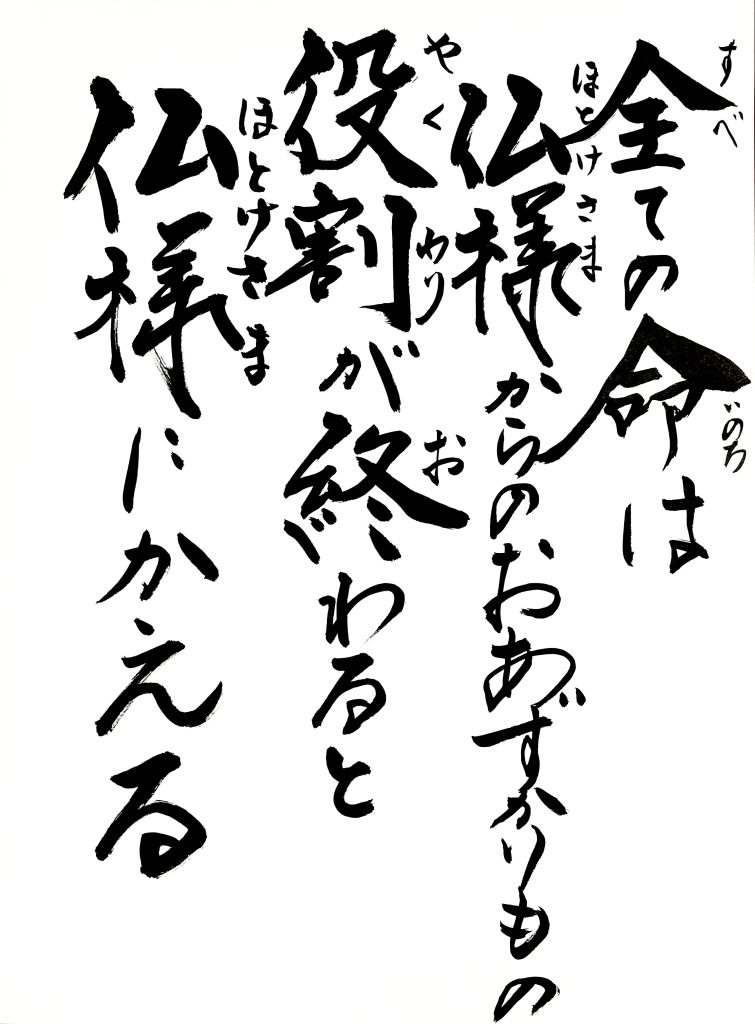 全ての命は
すべ
いのち
仏様からのおあずかりもの
ほとけさま
役割が終わると
やくわり
お
仏様にかえる
ほとけさま